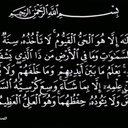 بِسْمِ اللَّهِ الرَّحْمَٰنِ الرَّحِيمِ
إِلَٰهَ إِلَّا هُوَ الْحَيُّ الْقَيُّومُ لَا تَأْخُذُهُ سِنَةٌ
السَّمَاوَاتِ وَمَا فِي الْأَرْضِ مَن ذَا الَّذِي يَشْفَعُ
يَعْلَمُ مَا بَيْنَ أَيْدِيهِمْ وَمَا خَلْفَهُمْ وَلَا
عِلْمِهِ إِلَّا بِمَا شَاءَ وَسِعَ كُرْسِيُّهُ السَّمَاوَاتِ
وَلَا يَئُودُهُ حِفْظُهُمَا وَهُوَ الْعَلِيُّ الْعَظِيمُ